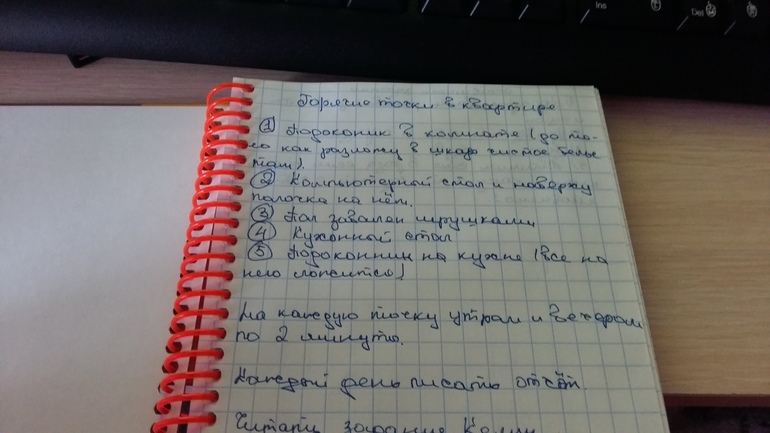 Горячие точки в квартире
① Подоконник в комнате (до то-
го как разложу в шкафу чистое белье
там).
② Компьютерный стол и наверху
полочка на нём.
③ Пол завален игрушками
④ Кухонный стол
⑤ Подоконник на кухне (все на
него ложится)
На каждую точку утром и вечером
по 2 минуты.
Каждый день писать отчёт
Читать задание
Ins
Del